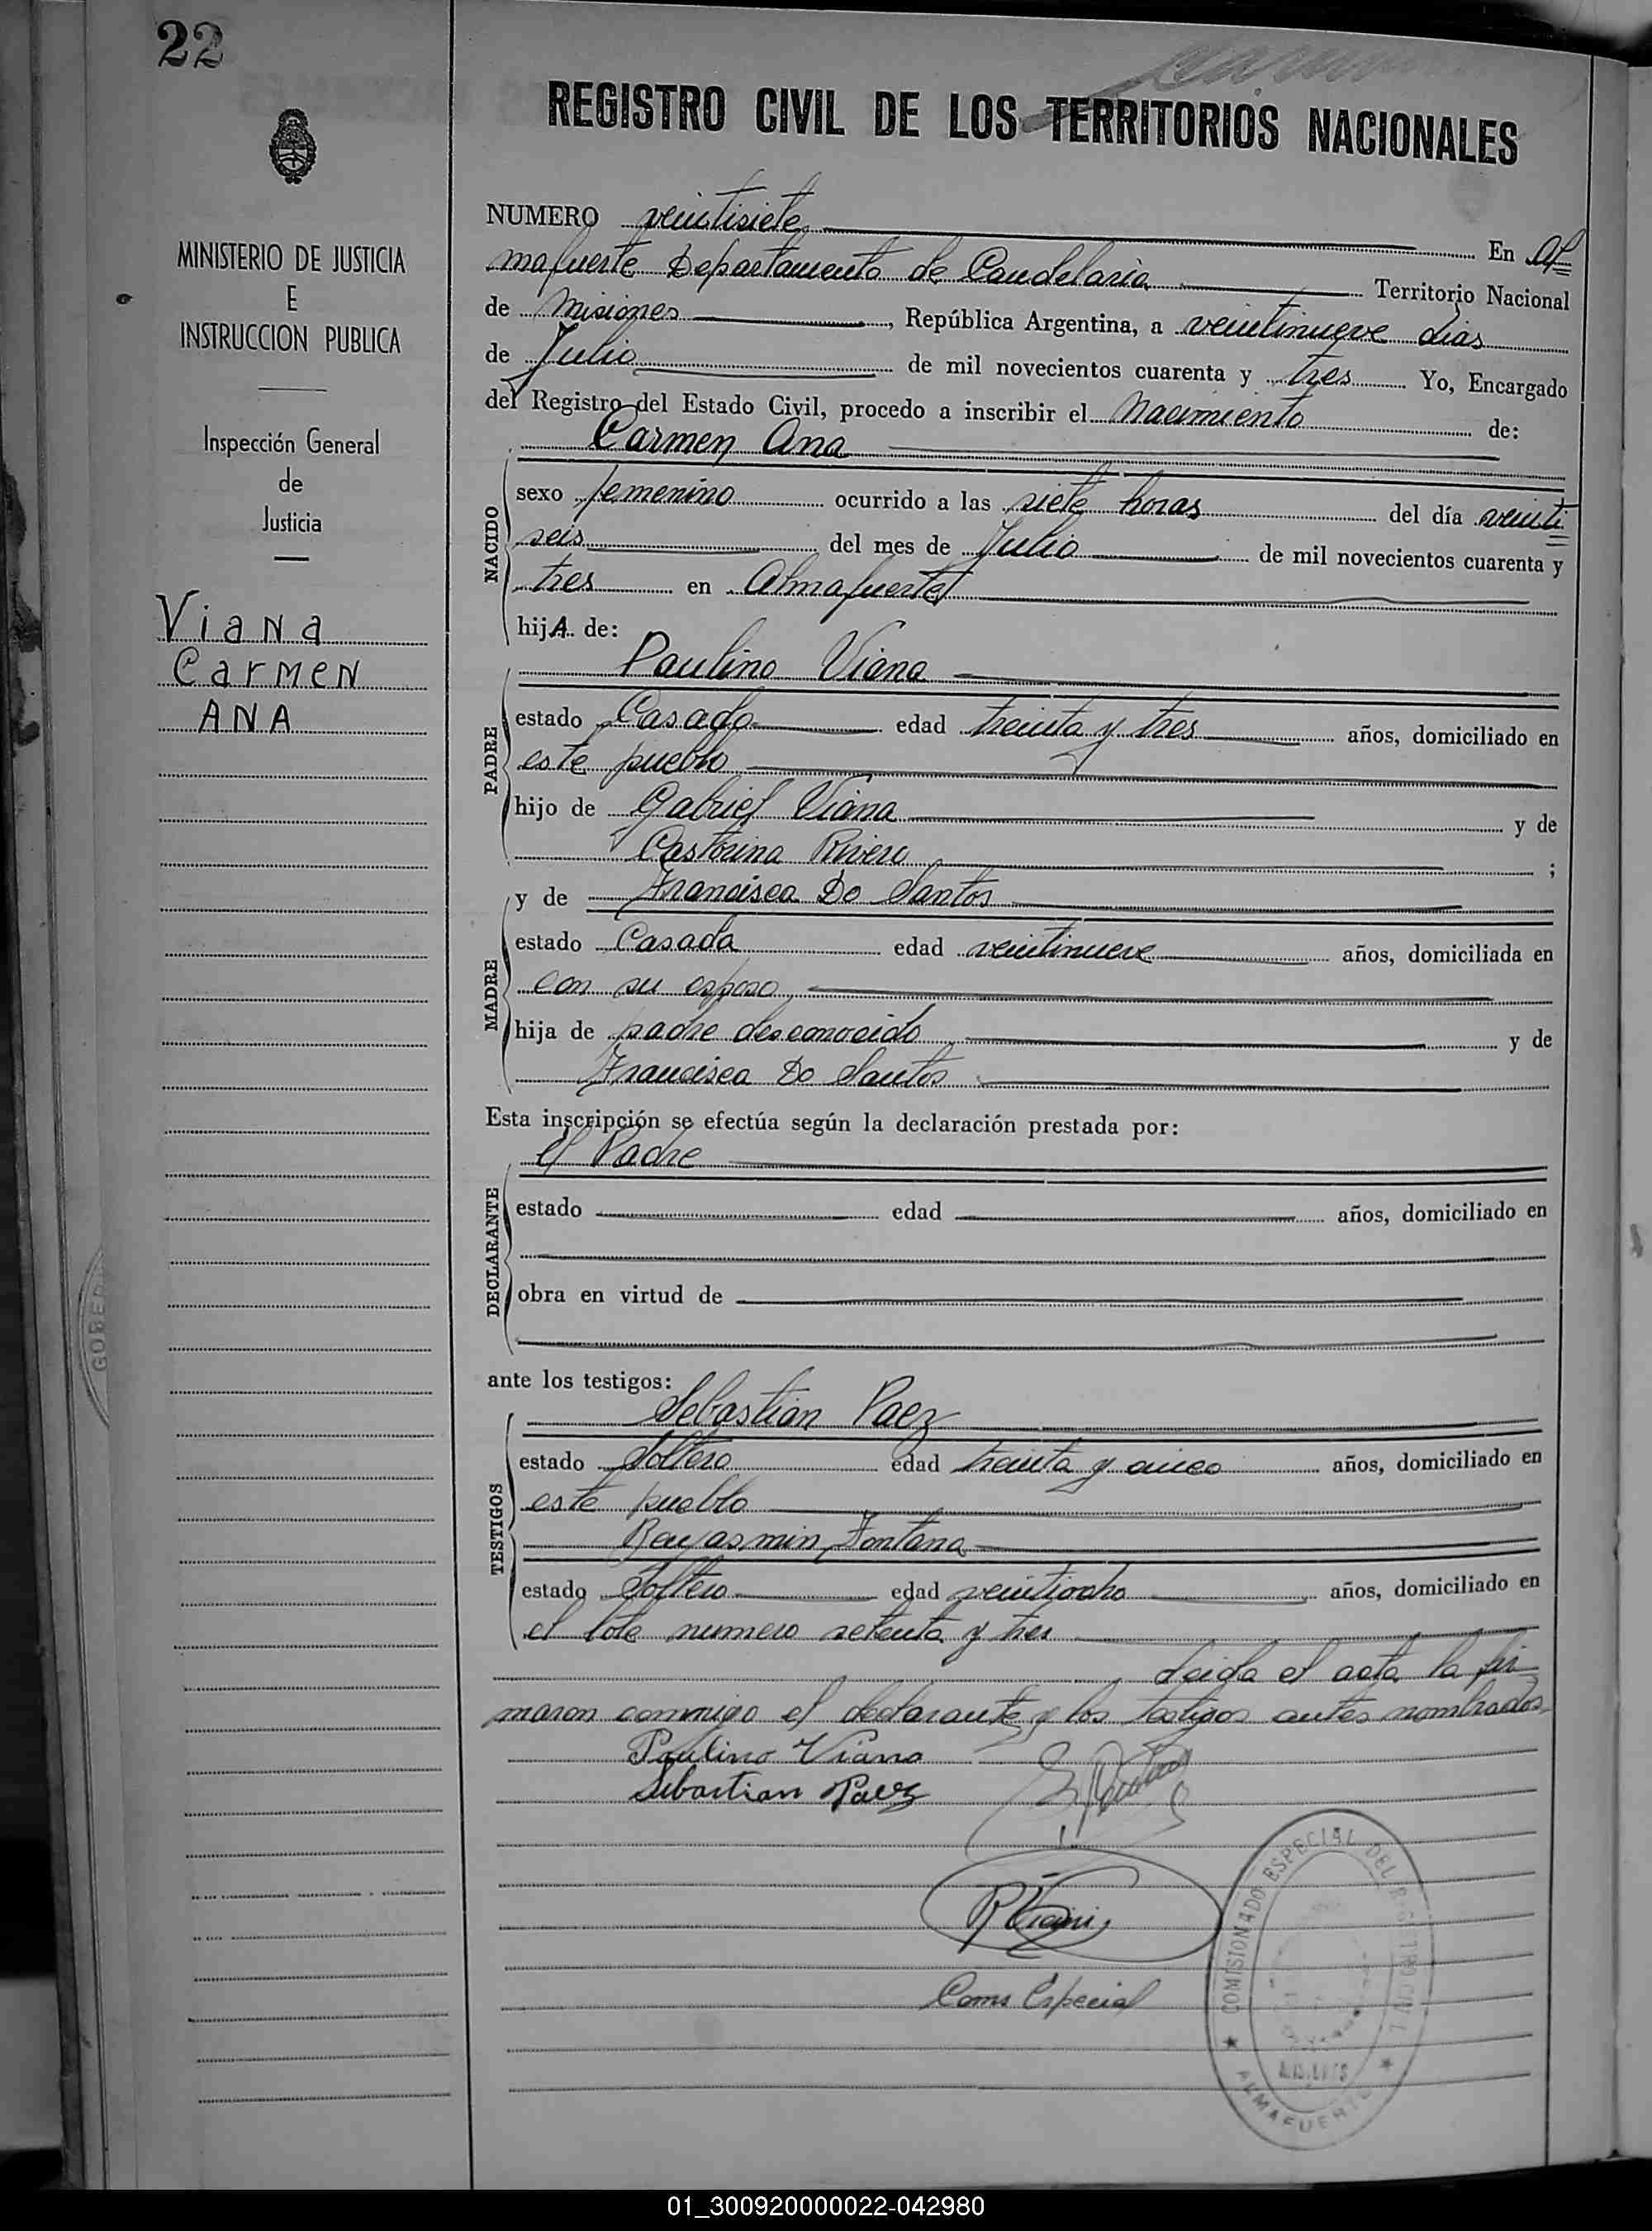 22
MINISTERIO DE JUSTICIA
E
INSTRUCCION PUBLICA
Inspección General
de
Justicia
Viana
Carmen
ANA
REGISTRO CIVIL DE LOS TERRITORIOS NACIONALES
NUMERO veintisiete En Al=
mafuerte Departamento de Candelaria Territorio Nacional
de Misiones, República Argentina, a veintinueve dias
de Julio de mil novecientos cuarenta y tres Yo, Encargado
del Registro del Estado Civil, procedo a inscribir el Nacimiento de:
Carmen Ana
NACIDO
sexo femenino ocurrido a las siete horas del día veinti=
seis del mes de Julio de mil novecientos cuarenta y
tres en Almafuerte
hijA de:
Paulino Viana
PADRE
estado Casado edad treinta y tres años, domiciliado en
este pueblo
hijo de Gabriel Viana y de
Castorina Rivero ;
y de Francisca Do Santos
MADRE
estado Casada edad veintinueve años, domiciliada en
con su esposo,
hija de padre desconocido y de
Francisca Do Santos
Esta inscripción se efectúa según la declaración prestada por:
el Padre
DECLARANTE
estado edad años, domiciliado en
obra en virtud de
ante los testigos:
Sebastian Paez
TESTIGOS
estado Soltero edad treinta y cinco años, domiciliado en
este pueblo
Benjasmin Fontana
estado Soltero edad veintiocho años, domiciliado en
el lote numero setenta y tres
Leida el acta la fir
maron conmigo el declarante y los testigos antes nombrados
Paulino Viana
Sebastian Paez
Coms Especial
COMISIONADO ESPECIAL DEL REGISTRO CIVIL
ALMAFUERTE
01_300920000022-042980